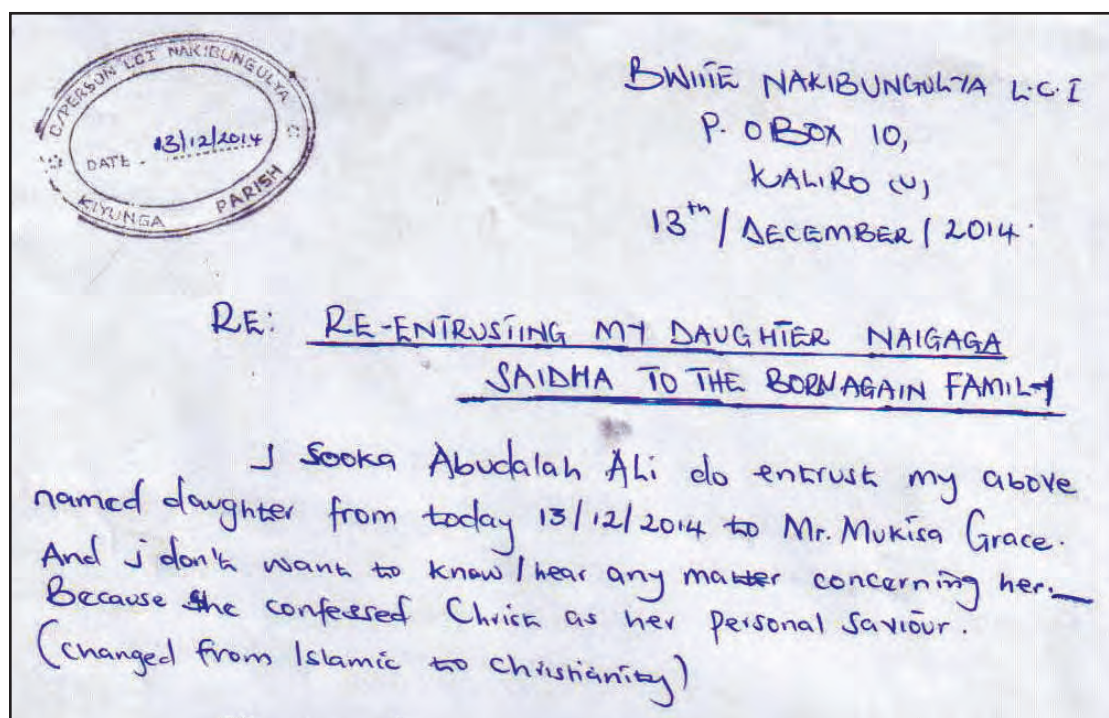 C/PERSON LCI NAKIBUNGULYA C
13/12/2014
DATE -
KIYUNGA PARISH
BWIITE NAKIBUNGULYA L.C.I
P. O BOX 10,
KALIRO (U)
13th / DECEMBER / 2014.
RE: RE-ENTRUSTING MY DAUGHTER NAIGAGA
SAIDHA TO THE BORNAGAIN FAMILY
I Sooka Abudalah Ali do entrust my above
named daughter from today 13/12/2014 to Mr. Mukisa Grace.
And i don't want to know/hear any matter concerning her.
Because she confessed Christ as her personal saviour.
(changed from Islamic to Christianity)